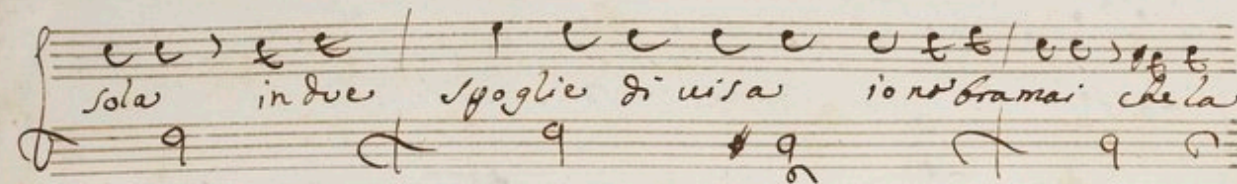 sola in due spoglie di uisa io no bramai che la